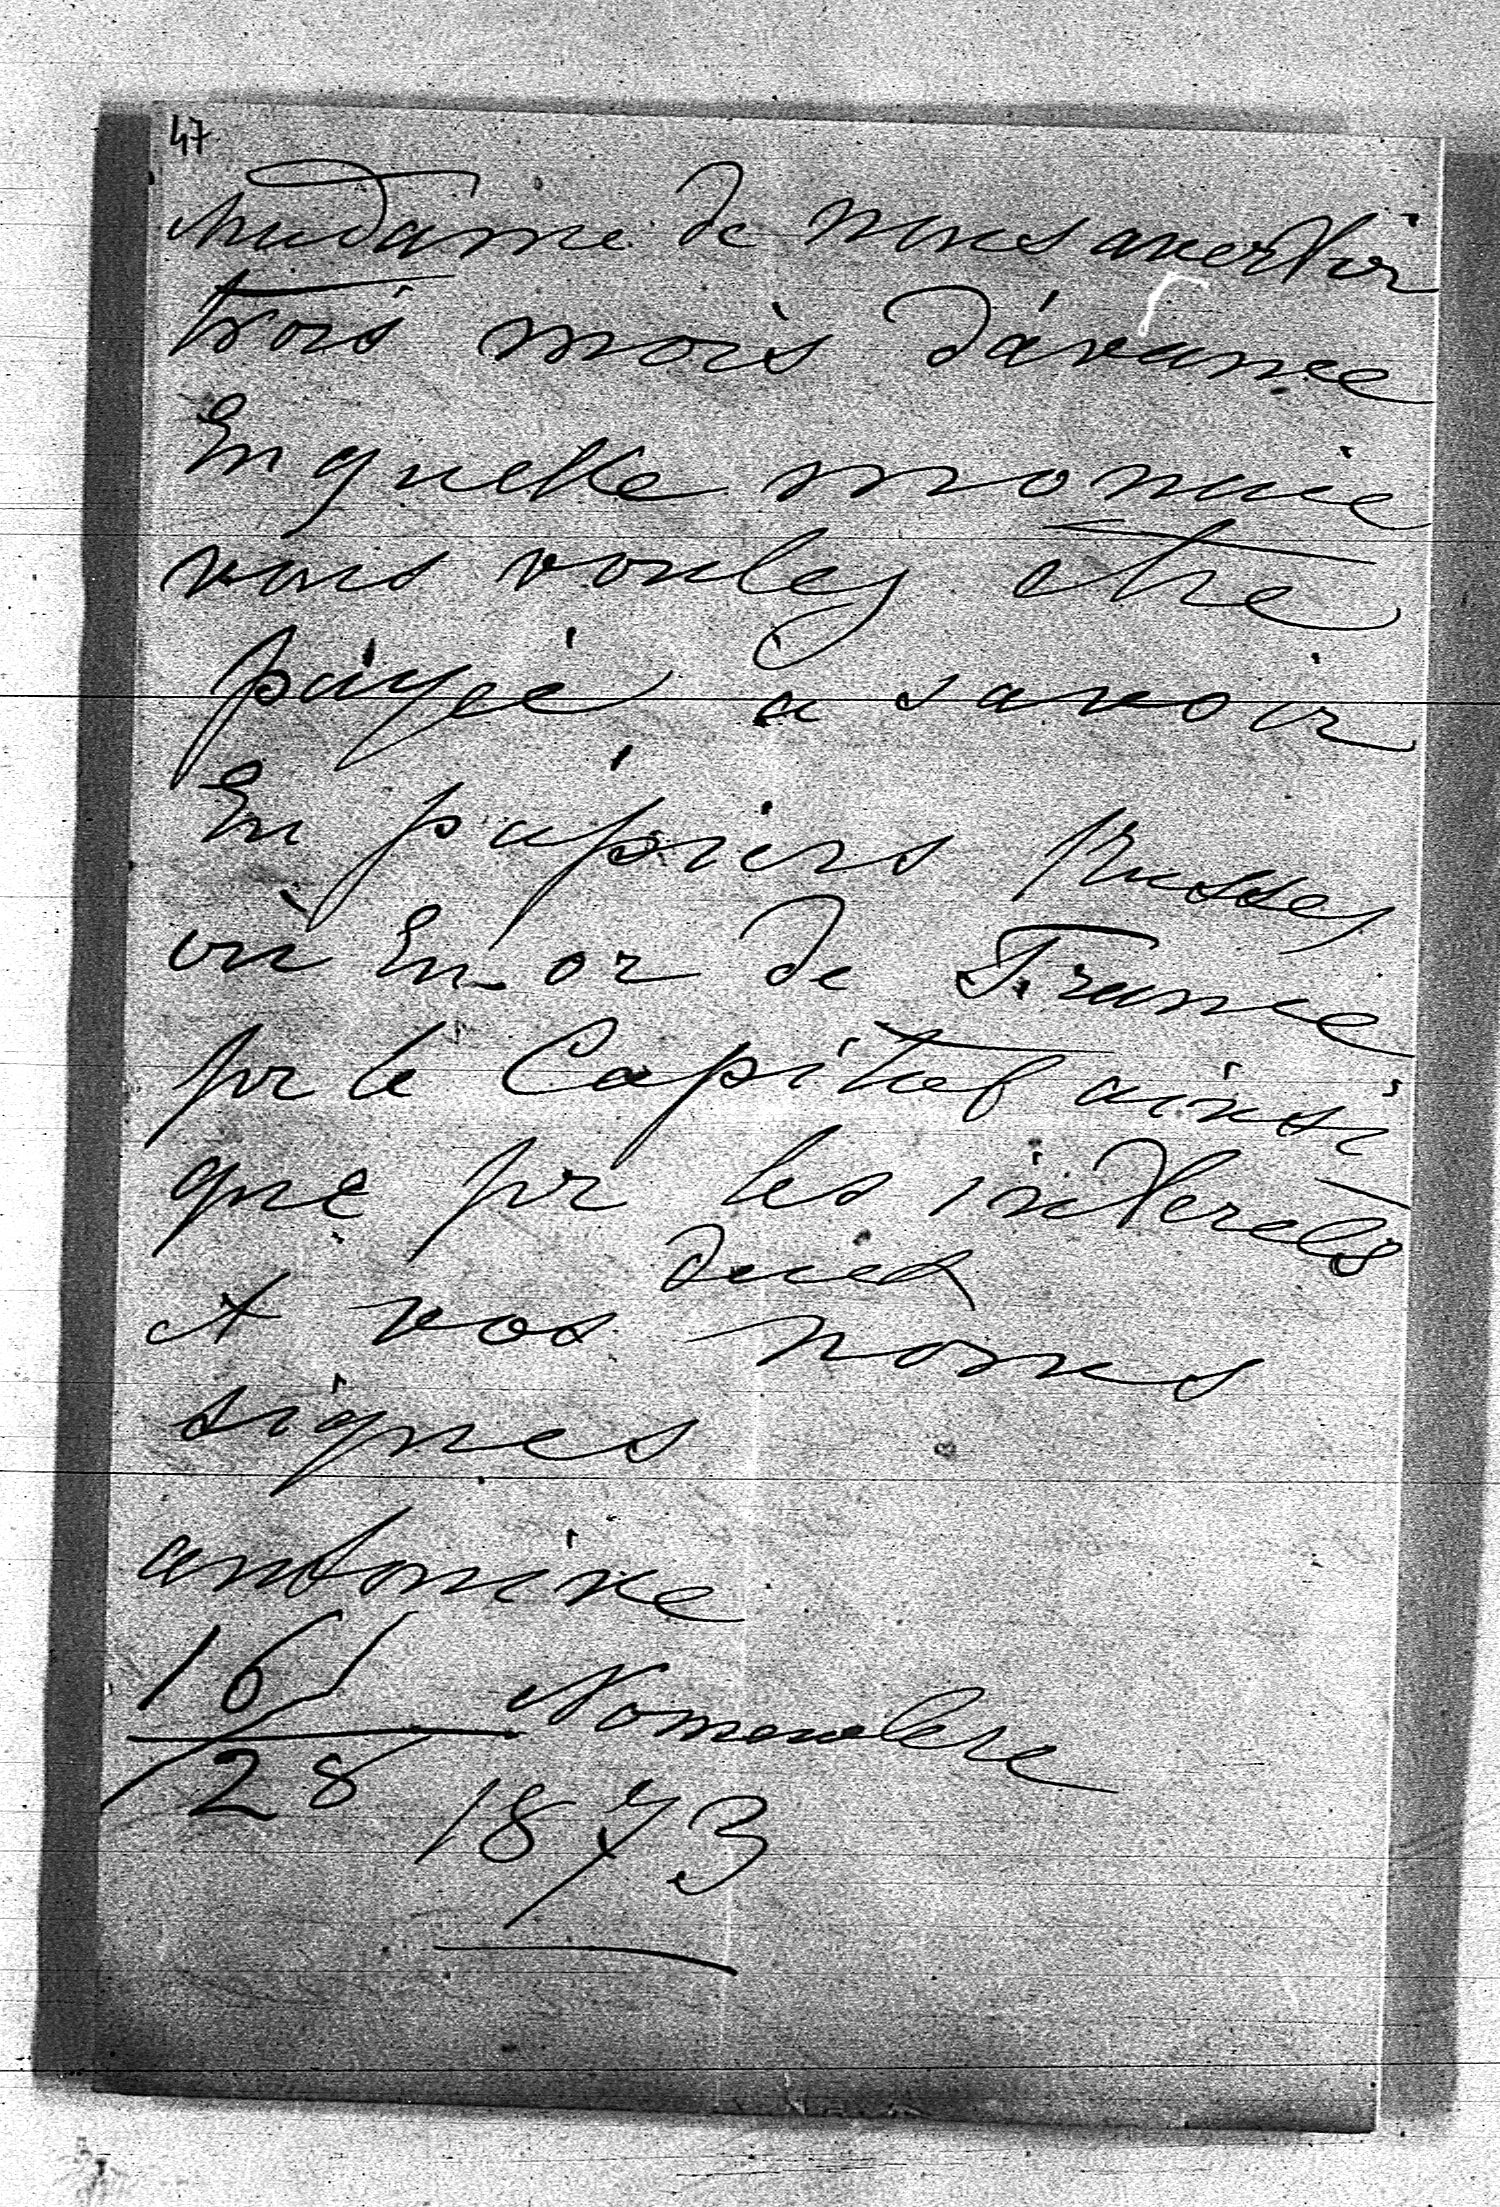 47
Madame de nous avertir
trois mois d'avance
En quelle monaie
vous voulez etre
payée a savoir
En papiers Russes
où En or de France
pr le Capital ainsi
que pr les interets
deux
et vos noms
signes
antonine
16/28 Novembre
1873